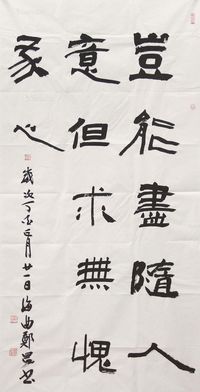 豈能盡隨人
意但求無愧
我心
歲次丁亥月廿一日海曲鄭書